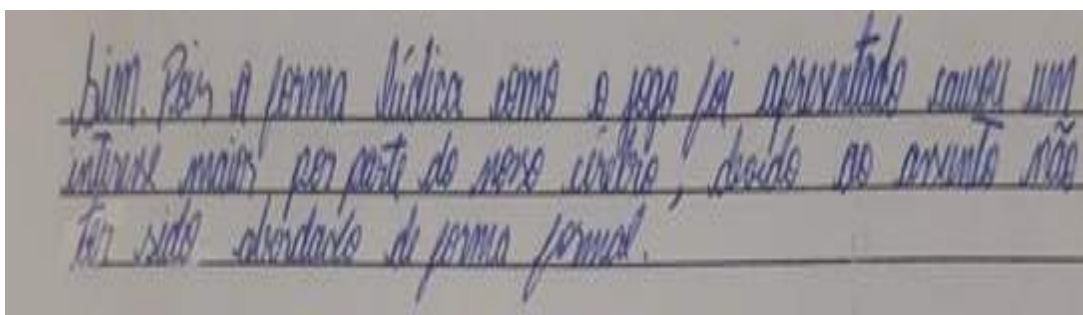 Sim. Pois a forma lúdica como o jogo foi apresentado causou um
interesse maior por parte do nosso cérebro, devido ao assunto não
ter sido abordado de forma formal.